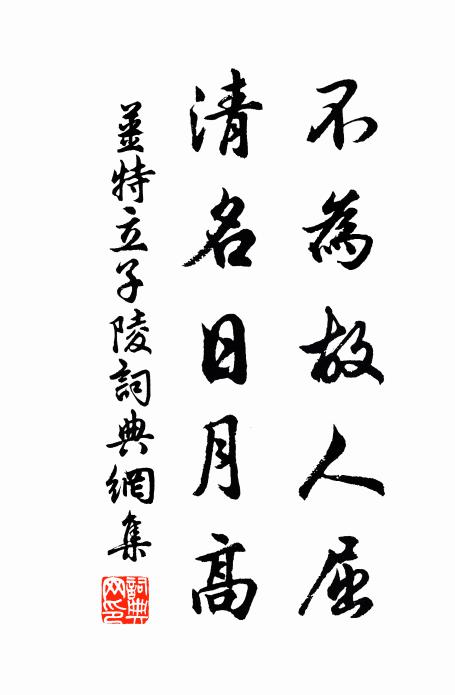 不為故人屈
清名日月高
姜特立子陵詞典網集
詞典網印